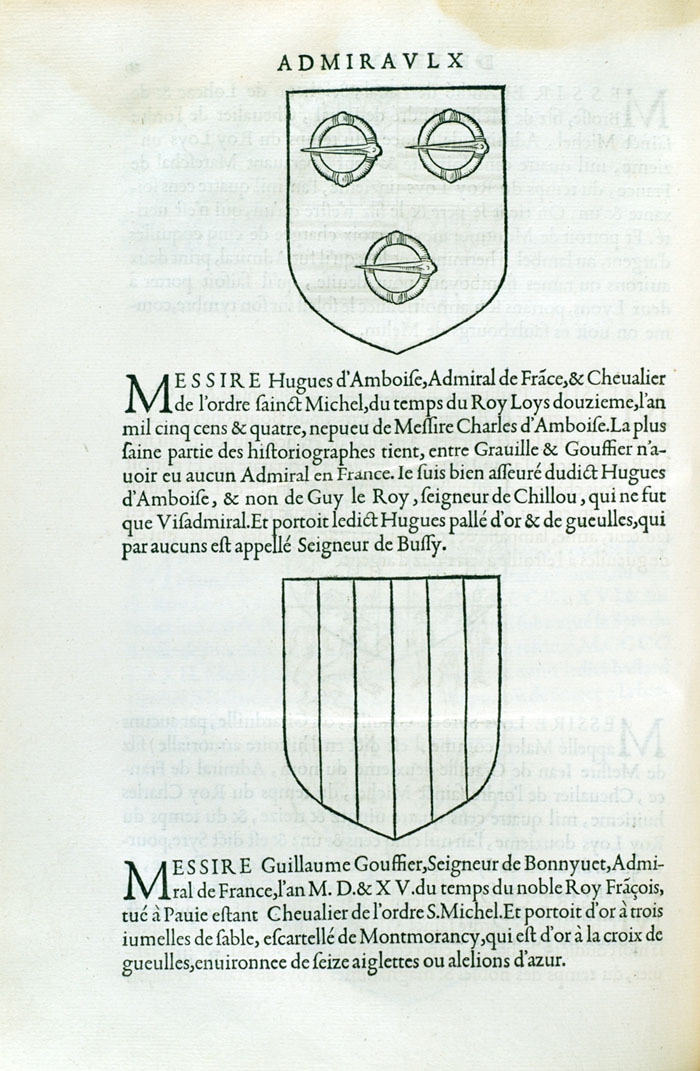 ADMIRAVLX
MESSIRE Hugues d'Amboiſe,Admiral de Frãce,& Cheualier
de l'ordre ſainct Michel,du temps du Roy Loys douzieme,l'an
mil cinq cens & quatre, nepueu de Meſſire Charles d'Amboiſe.La plus
ſaine partie des hiſtoriographes tient, entre Grauille & Gouffier n'a-
uoir eu aucun Admiral en France. Ie ſuis bien aſſeuré dudict Hugues
d'Amboiſe, & non de Guy le Roy, ſeigneur de Chillou, qui ne fut
que Viſadmiral.Et portoit ledict Hugues pallé d'or & de gueulles,qui
par aucuns eſt appellé Seigneur de Buſſy.
MESSIRE Guillaume Gouffier,Seigneur de Bonnyuet,Admi-
ral de France,l'an M. D.& X V.du temps du noble Roy Frãçois,
tué à Pauie eſtant Cheualier de l'ordre S.Michel.Et portoit d'or à trois
iumelles de ſable, eſcartellé de Montmorancy,qui eſt d'or à la croix de
gueulles,enuironnee de ſeize aiglettes ou alelions d'azur.